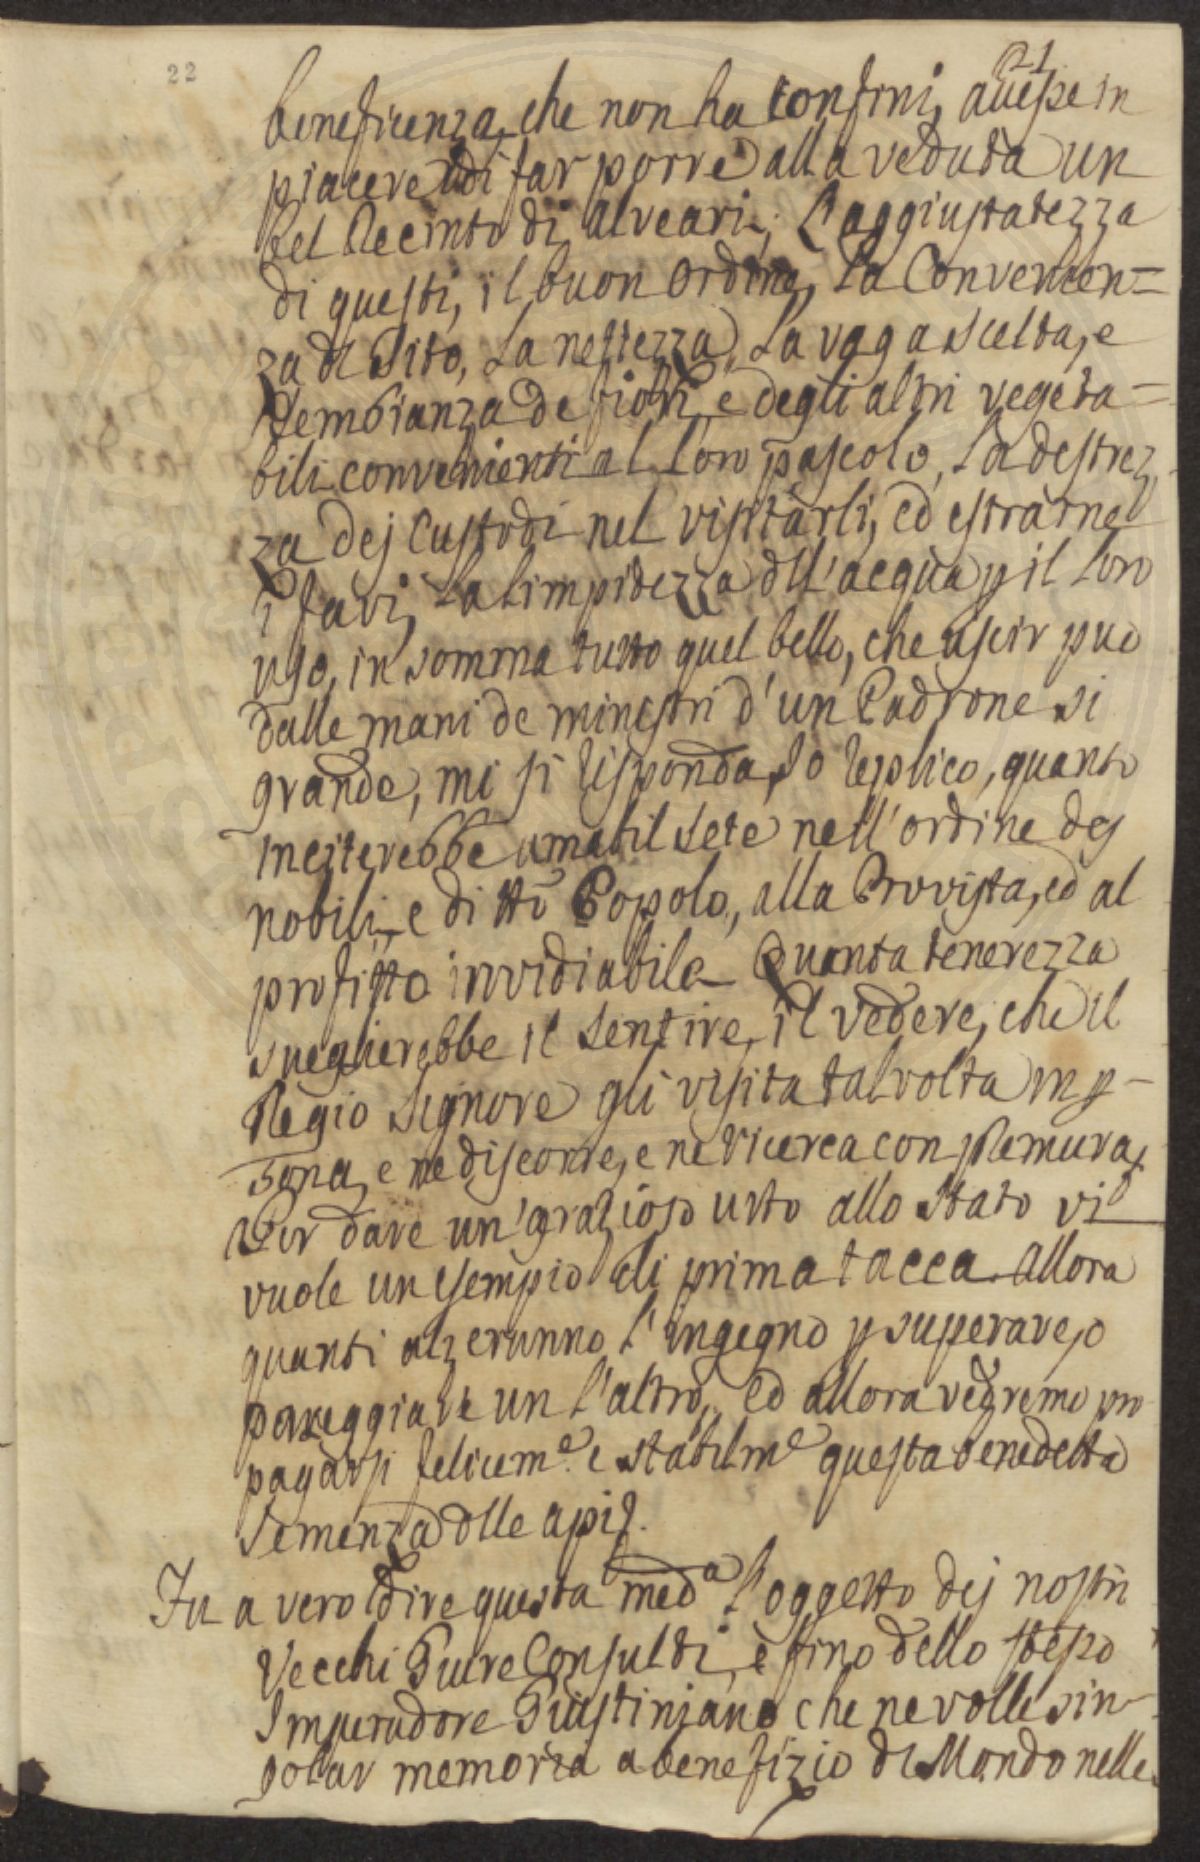 22
21
beneficenza, che non ha confini, avesse in
piacere di far porre alla veduta un
bel Recinto di alveari; L'aggiustatezza
di questi, il buon ordine, La Convenien=
za dl sito, La nettezza, La vaga scelta, e
sembianza de fiori, e degli altri vegeta=
bili convenienti al Loro pascolo, La destrez
za dej Custodi nel visitarli, ed estrarne
i favi, La Limpidezza dll'acqua p il Loro
uso, in somma tutto quel bello, che uscir può
dalle mani de ministri d'un Padrone si
grande, mi si risponda, Io replico, quanto
inciterebbe amabil sete nell'ordine dej
nobili, e di tto Popolo, alla Provista, ed al
profitto invidiabile. Quanta tenerezza
sveglierebbe il sentire, il vedere, che il
Regio Signore gli visita talvolta in p-
sona, e ne discorre, e ne ricerca con premura,
Per dare un'grazioso urto allo stato vi
vuole un esempio di prima tacca. Allora
quanti alzeranno L'ingegno p superare, o
pareggiare un L'altro, Ed allora vedremo pro
pagarsi felicem.e e stabilm.e questa benedetta
semenza dlle api.
Fu a vero dire questa med.a L'oggetto dej nostri
Vecchi Giure Consulti, e fino dello stesso
Imperadore Giustiniano che ne volle sin-
golar memoria a benefizio dl Mondo nelle